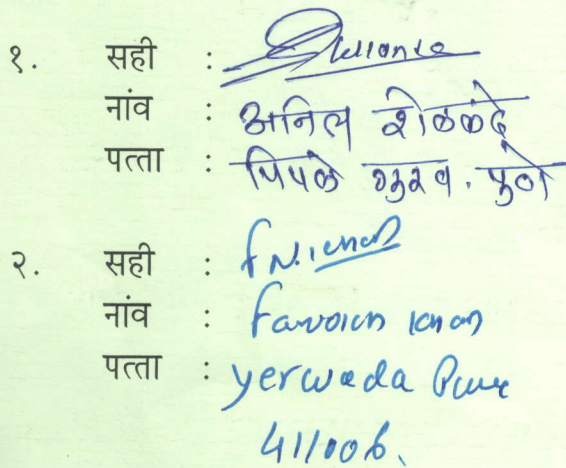 १. सही :
नांव : अनिल शेळकंदे
पत्ता : पिंपळे गुरव. पुणे
२. सही : F N. Khan
नांव : Khan
पत्ता : yerwada Pune
411006.